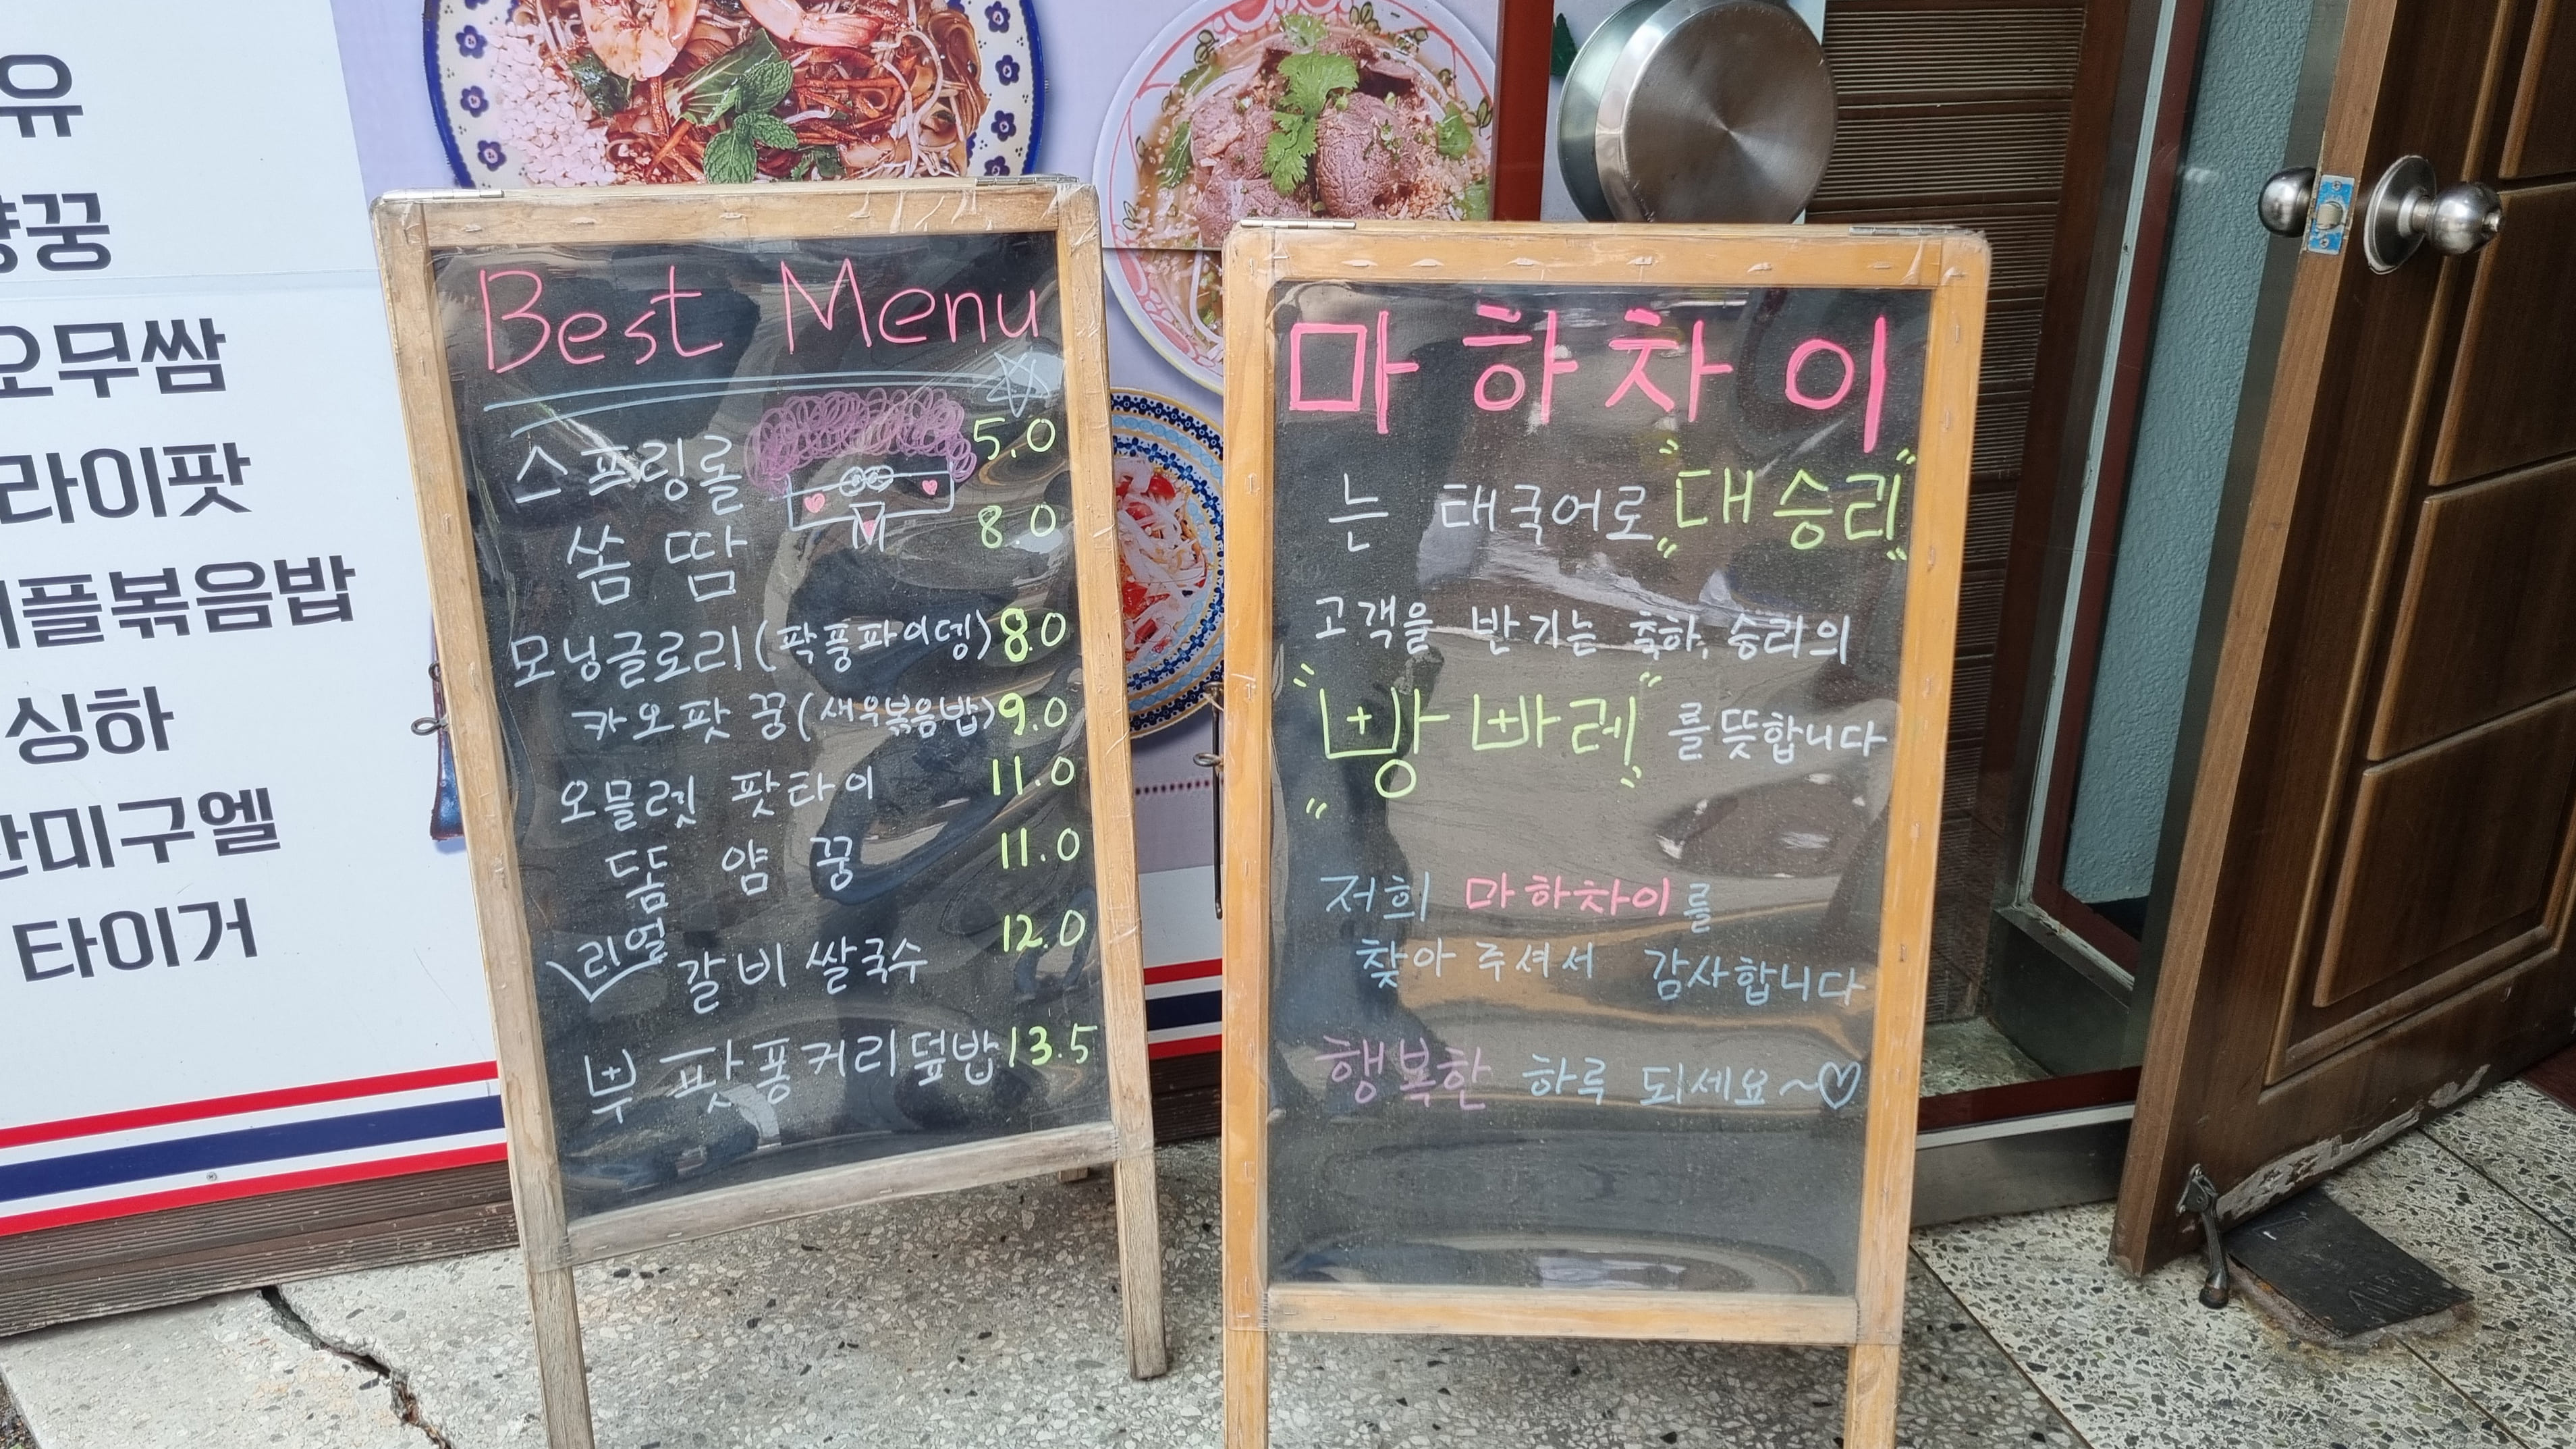 유
꿍
오무쌈
라이팟
플볶음밥
싱하
산미구엘
타이거
Best Menu
스프링롤 5.0
쏨땀 8.0
모닝글로리(팍풍파이뎅) 8.0
카오팟 꿍(새우볶음밥) 9.0
오믈렛 팟타이 11.0
똠 얌 꿍 11.0
리얼 갈비 쌀국수 12.0
뿌 팟퐁커리덮밥 13.5
마하차이
는 태국어로 "대승리"
고객을 반기는 축하, 승리의
"빵빠레"를 뜻합니다
저희 마하차이를
찾아 주셔서 감사합니다
행복한 하루 되세요~♡